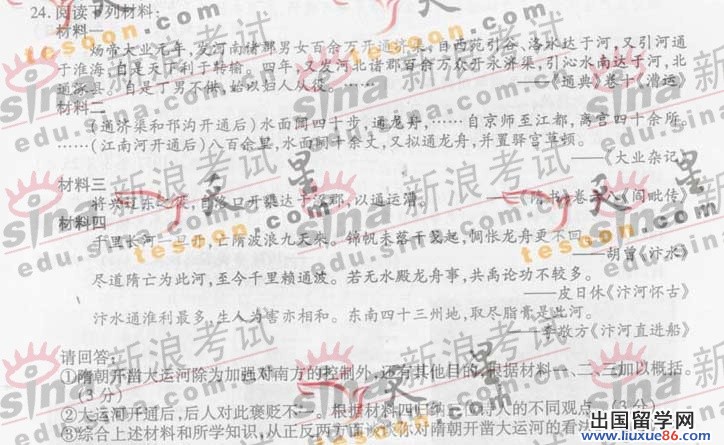 24.阅读下列材料:
材料一
炀帝大业元年,发河南诸郡男女百余万开通济渠,自西苑引谷、洛水达于河,又引河通
于淮海,自是天下利于转输。四年,又发河北诸郡百余万众开永济渠,引沁水南达于河,北
通涿县。自是丁男不供,始以妇人从役。……——《通典》卷十《漕运》
材料二
(通济渠和邗沟开通后)水面阔四十步,通龙舟,……自京师至江都,离宫四十余所。
……(江南河开通后)八百余里,水面阔十余丈,又拟通龙舟,并置驿宫草顿。
——《大业杂记》
材料三
将兴辽东之役,自洛口开渠达于涿郡,以通运漕。——《隋书》卷 《阎毗传》
材料四
千里长河一旦开,亡隋波浪九天来。锦帆未落干戈起,惆怅龙舟更不回。
——胡曾《汴水》
尽道隋亡为此河,至今千里赖通波。若无水殿龙舟事,共禹论功不较多。
——皮日休《汴河怀古》
汴水通淮利最多,生人为害亦相和。东南四十三州地,取尽脂膏是此河。
——李敬方《汴河直进船》
请回答:
①隋朝开凿大运河除为加强对南方的控制外,还有其他目的,根据材料一、二、三加以概括。
(3分)
②大运河开通后,后人对此褒贬不一。根据材料四归纳三 诗人的不同观点。(3分)
③综合上述材料和所学知识,从正反两方面谈谈你对隋朝开凿大运河的看法。
sina 新浪考试
edu.sina.com.cn
tesoon.com
天星
出国留学网
www.liuxue86.com